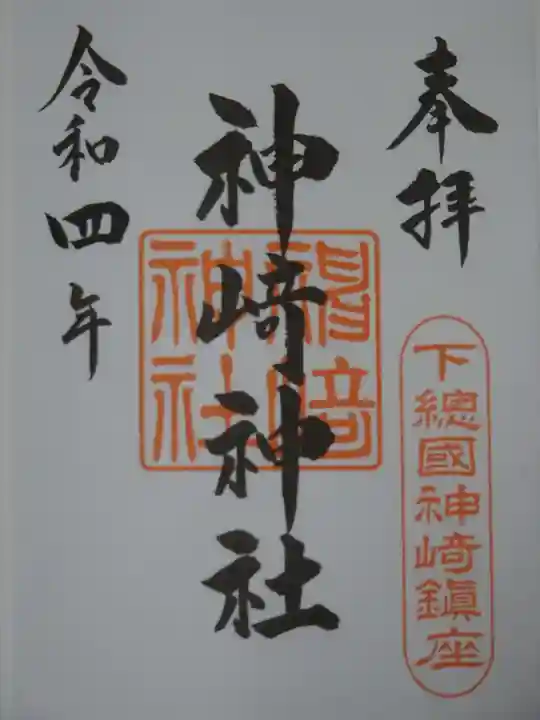 奉拝
下總國神崎鎮座
神崎神社
神崎
神社
令和四年